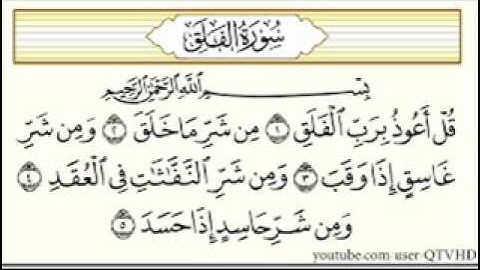 سُورَةُ الفَلَقِ
بِسْمِ اللَّهِ الرَّحْمَٰنِ الرَّحِيمِ
قُلْ أَعُوذُ بِرَبِّ ٱلْفَلَقِ ١ مِن شَرِّ مَا خَلَقَ ٢ وَمِن شَرِّ
غَاسِقٍ إِذَا وَقَبَ ٣ وَمِن شَرِّ ٱلنَّفَّٰثَٰتِ فِى ٱلْعُقَدِ ٤
وَمِن شَرِّ حَاسِدٍ إِذَا حَسَدَ ٥
youtube.com user QTVHD